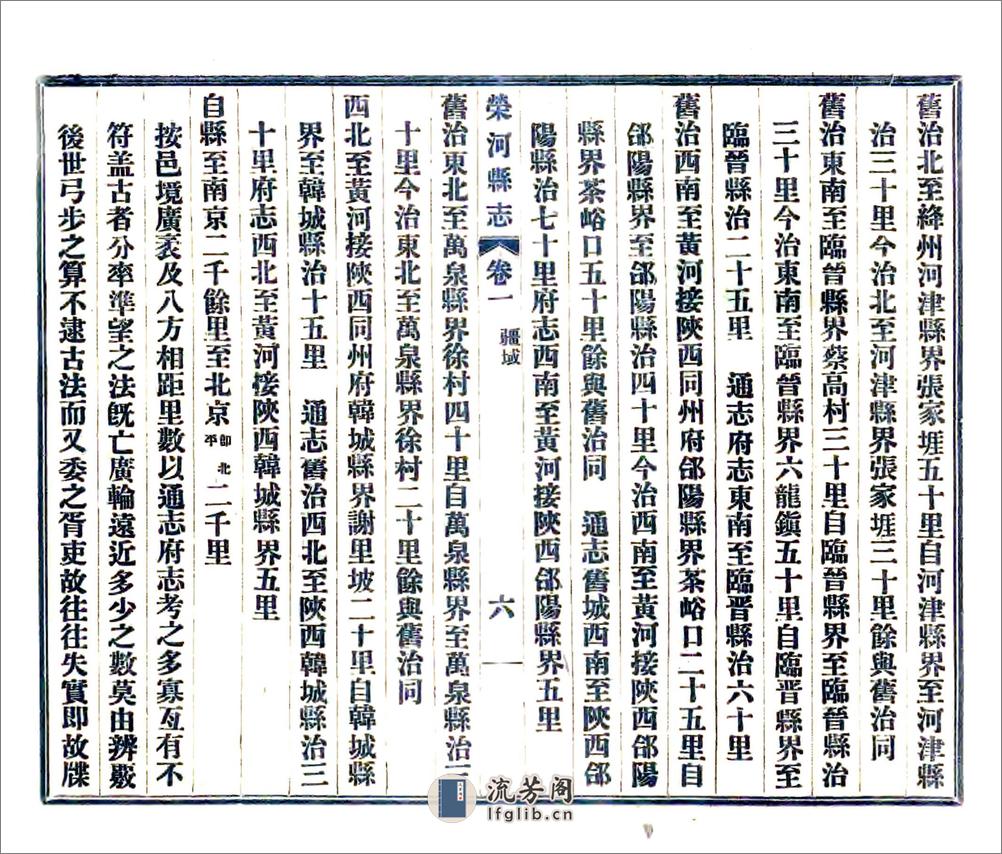 舊治北至絳州河津縣界張家堐五十里自河津縣界至河津縣
治三十里今治北至河津縣界張家堐三十里餘與舊治同
舊治東南至臨晉縣界蔡高村三十里自臨晉縣界至臨晉縣治
三十里今治東南至臨晉縣界六龍鎭五十里自臨晋縣界至
臨晉縣治二十五里　通志府志東南至臨晋縣治六十里
舊治西南至黃河接陝西同州府郃陽縣界茶峪口二十五里自
郃陽縣界至郃陽縣治四十里今治西南至黃河接陝西郃陽
縣界茶峪口五十里餘與舊治同　通志舊城西南至陝西郃
陽縣治七十里府志西南至黃河接陝西郃陽縣界五里
榮河縣志　卷一　疆域　六
舊治東北至萬泉縣界徐村四十里自萬泉縣界至萬泉縣治三
十里今治東北至萬泉縣界徐村二十里餘與舊治同
西北至黃河接陝西同州府韓城縣界謝里坡二十里自韓城縣
界至韓城縣治十五里　通志舊治西北至陝西韓城縣治三
十里府志西北至黃河接陝西韓城縣界五里
自縣至南京二千餘里至北京卽北平二千里
按邑境廣袤及八方相距里數以通志府志考之多寡互有不
符盖古者分率準望之法旣亡廣輪遠近多少之數莫由辨覈
後世弓步之算不逮古法而又委之胥吏故往往失實即故牒
流芳阁
lfglib.cn